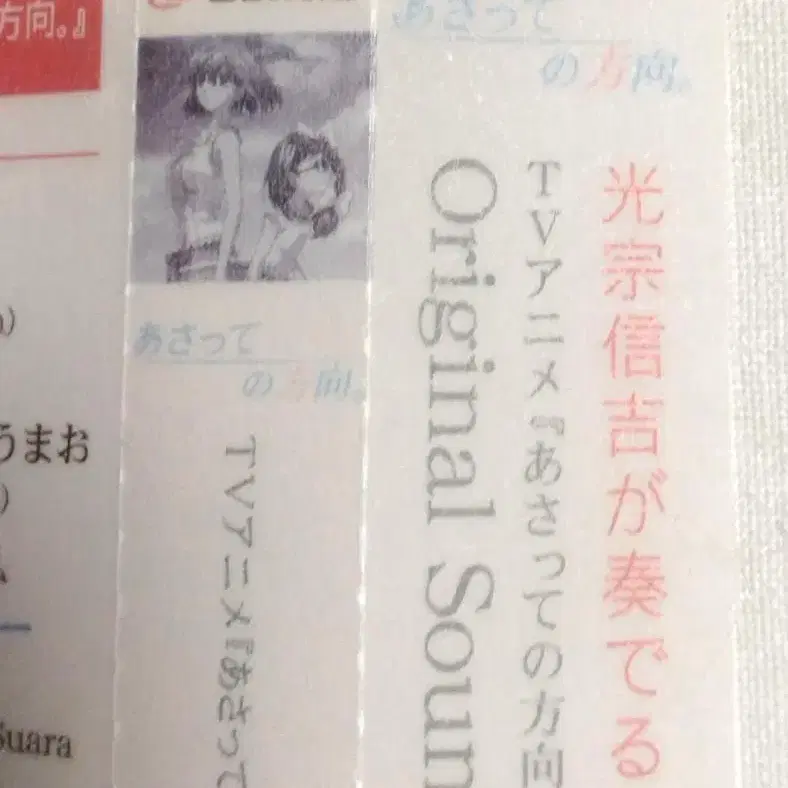 方向。』
うまお
Suara
あさって
の方向。
TVアニメ『あさって
あさって
の方向。
光宗信吉が奏でる
TVアニメ『あさっての方向
Original Soun